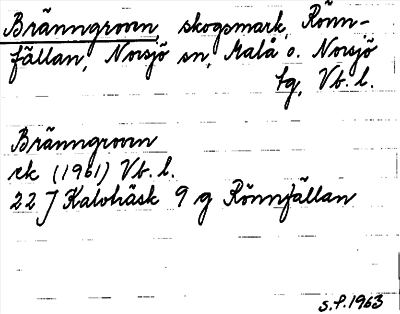 Bränngroven, skogsmark, Rönn-
fällan, Norsjö sn, Malå o. Norsjö
tg, Vb. l.
Bränngroven
ek (1961) Vb. l.
22 J Kalvträsk 9 g Rönnfällan
S.F. 1963